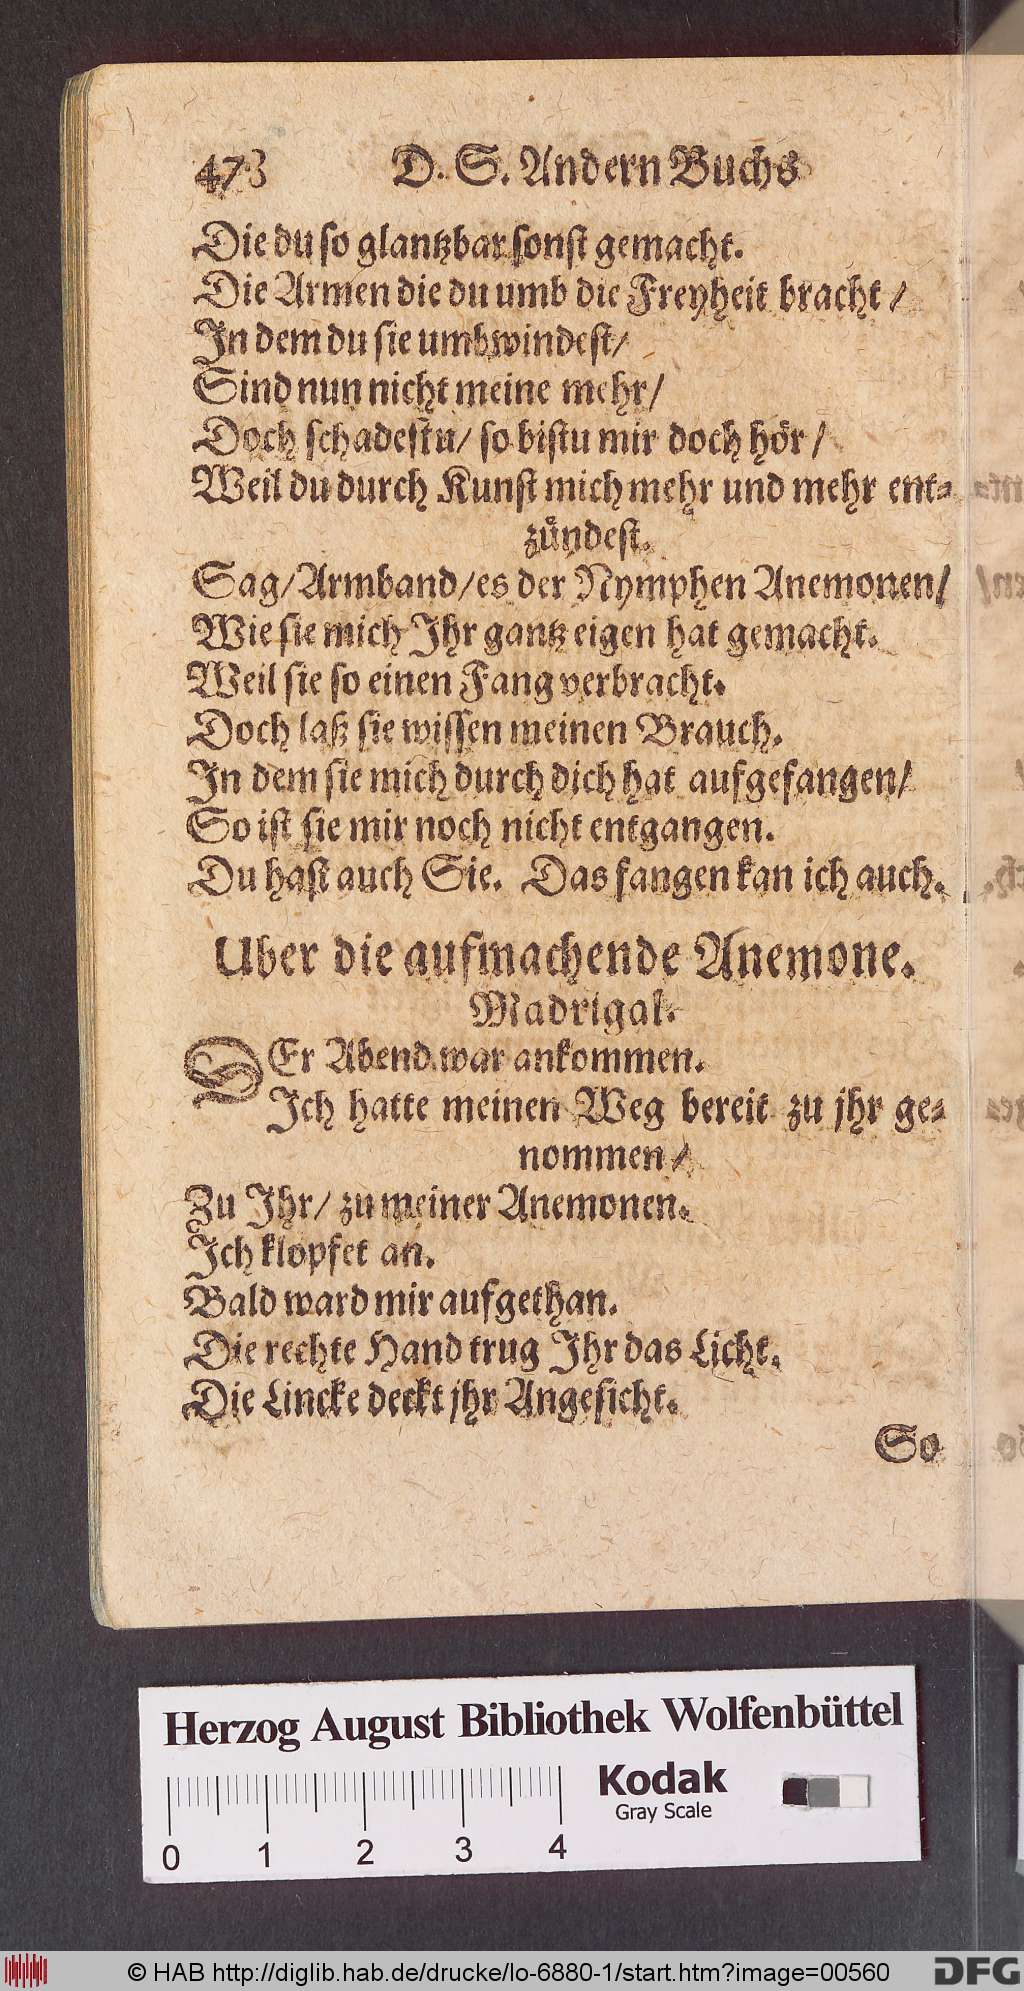 478 D. S. Andern Buchs
Die du so glantzbar sonst gemacht.
Die Armen die du umb die Freyheit bracht /
In dem du sie umbwindest/
Sind nun nicht meine mehr/
Doch schadestu/ so bistu mir doch hör /
Weil du durch Kunst mich mehr und mehr ent=
zündest.
Sag/Armband/es der Nymphen Anemonen/
Wie sie mich Ihr gantz eigen hat gemacht.
Weil sie so einen Fang verbracht.
Doch laß sie wissen meinen Brauch.
In dem sie mich durch dich hat aufgefangen/
So ist sie mir noch nicht entgangen.
Du hast auch Sie. Das fangen kan ich auch.
Uber die aufmachende Anemone.
Madrigal.
DEr Abend war ankommen.
Ich hatte meinen Weg bereit zu jhr ge=
nommen /
Zu Ihr/ zu meiner Anemonen.
Ich klopfet an.
Bald ward mir aufgethan.
Die rechte Hand trug Ihr das Licht.
Die Lincke deckt jhr Angesicht.
So
Herzog August Bibliothek Wolfenbüttel
Kodak
Gray Scale
0 1 2 3 4
© HAB http://diglib.hab.de/drucke/lo-6880-1/start.htm?image=00560
DFG